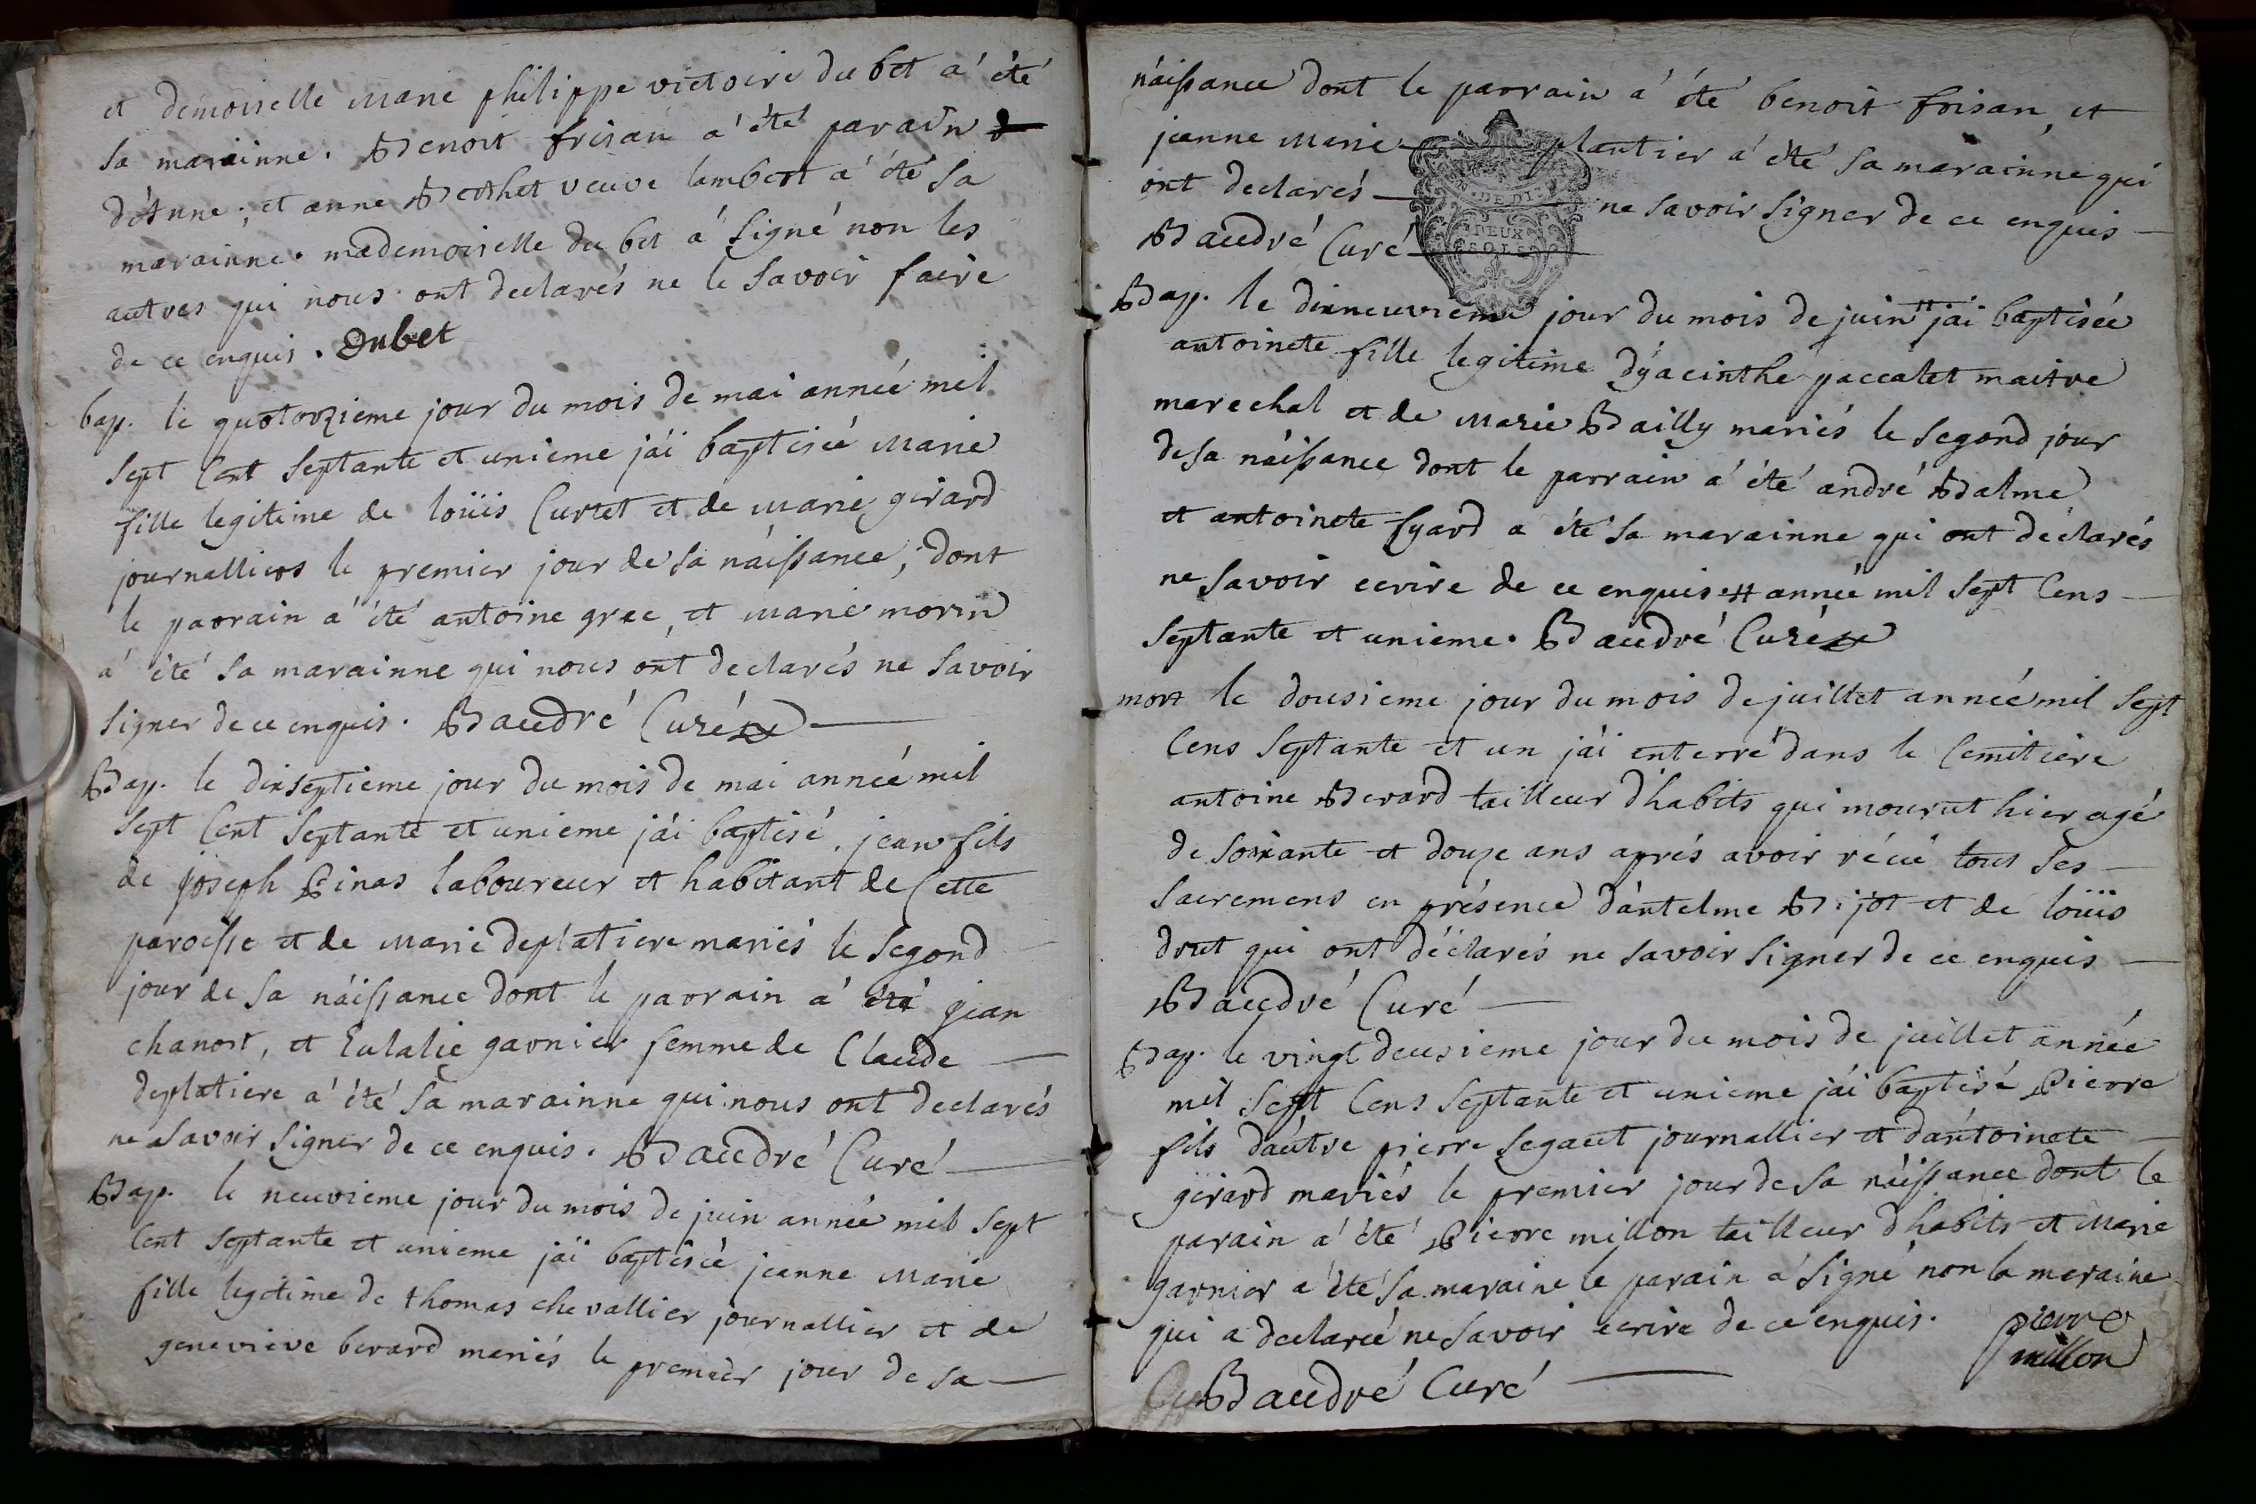 et demoiselle marie philippe victoire du bet a' été
sa marainne. Benoit frisan a' été parain
d'anne; et anne Berthet veuve lambert a' été sa
marainne. mademoiselle du bet a' signé non les
autres qui nous ont declarés ne le savoir faire
de ce enquis. Dubet
bap. le quatorzieme jour du mois de mai année mil
sept Cent septante et unieme j'ai baptisée marie
fille legitime de loüis Curtet et de marie girard
journalliers le premier jour de sa naissance, dont
le parrain a' été antoine grec, et marie morin
a' été sa marainne qui nous ont declarés ne savoir
signer de ce enquis. Baudré Curé
Bap. le dixseptieme jour du mois de mai année mil
sept Cent septante et unieme j'ai baptisé jean fils
de joseph Pinas laboureur et habitant de Cette
paroisse et de marie deplatiere mariés le segond
jour de sa naissance dont le parrain a' été jean
chanost, et Eulalie garnier femme de Claude
deplatiere a' été sa marainne qui nous ont declarés
ne savoir signer de ce enquis. Baudré Curé
Bap. le neuvieme jour du mois de juin année mil sept
Cent septante et unieme j'ai baptisée jeanne marie
fille legitime de thomas chevallier journallier et de
genevieve berard mariés le premier jour de sa
naissance dont le parrain a' été benoit frisan, et
jeanne marie plantier a' été sa marainne qui
ont declarés ne savoir signer de ce enquis
Baudré Curé
DEUX
SOLS
Bap. le dixneuvieme jour du mois de juin # j'ai baptisée
antoinete fille legitime d'yacinthe paccalet maitre
marechal et de marie Bailly mariés le segond jour
de sa naissance dont le parrain a' été andré Balme
et antoinete fyard a été sa marainne qui ont déclarés
ne savoir ecrire de ce enquis # année mil sept Cens
septante et unieme. Baudré Curé
mort le dousieme jour du mois de juillet année mil sept
Cens septante et un j'ai enterré dans le Cemitiere
antoine Berard tailleur d'habits qui mourut hier agé
de soixante et douze ans aprés avoir réçu tous ses
sacremens en présence d'antelme Bijot et de loüis
dout qui ont déclarés ne savoir signer de ce enquis
Baudré Curé
Bap. le vingt deusieme jour du mois de juillet année
mil sept Cens septante et unieme j'ai baptisé Pierre
fils d'autre pierre segaut journallier et d'antoinete
girard mariés le premier jour de sa naissance dont le
parain a' été Pierre millon tailleur d'habits et marie
garnier a' été sa maraine le parain a' signé non la maraine
qui a declarée ne savoir ecrire de ce enquis. pierre
millon
Baudré Curé